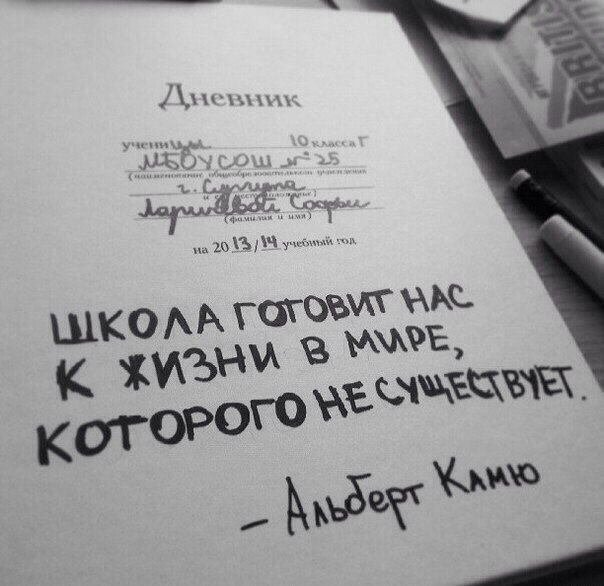 Дневник
ученицы 10 класса Г
МБОУСОШ №25
(наименование общеобразовательного учреждения
г. Сургута
и местоположение)
Софьи
(фамилия и имя)
на 2013/14 учебный год
ШКОЛА ГОТОВИТ НАС
К ЖИЗНИ В МИРЕ,
КОТОРОГО НЕ СУЩЕСТВУЕТ.
– Альберт Камю
BRITIS